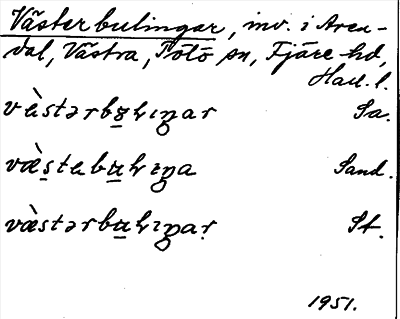 Västerbulingar, inv. i Aren-
dal, Västra, Rölö sn, Fjäre hd,
Hall. l.
vὰstərbu̲lıŋar Sa.
væ̀s̲tabu̲lıŋa Sand.
væ̀stərbu̲lıŋar St.
1951.